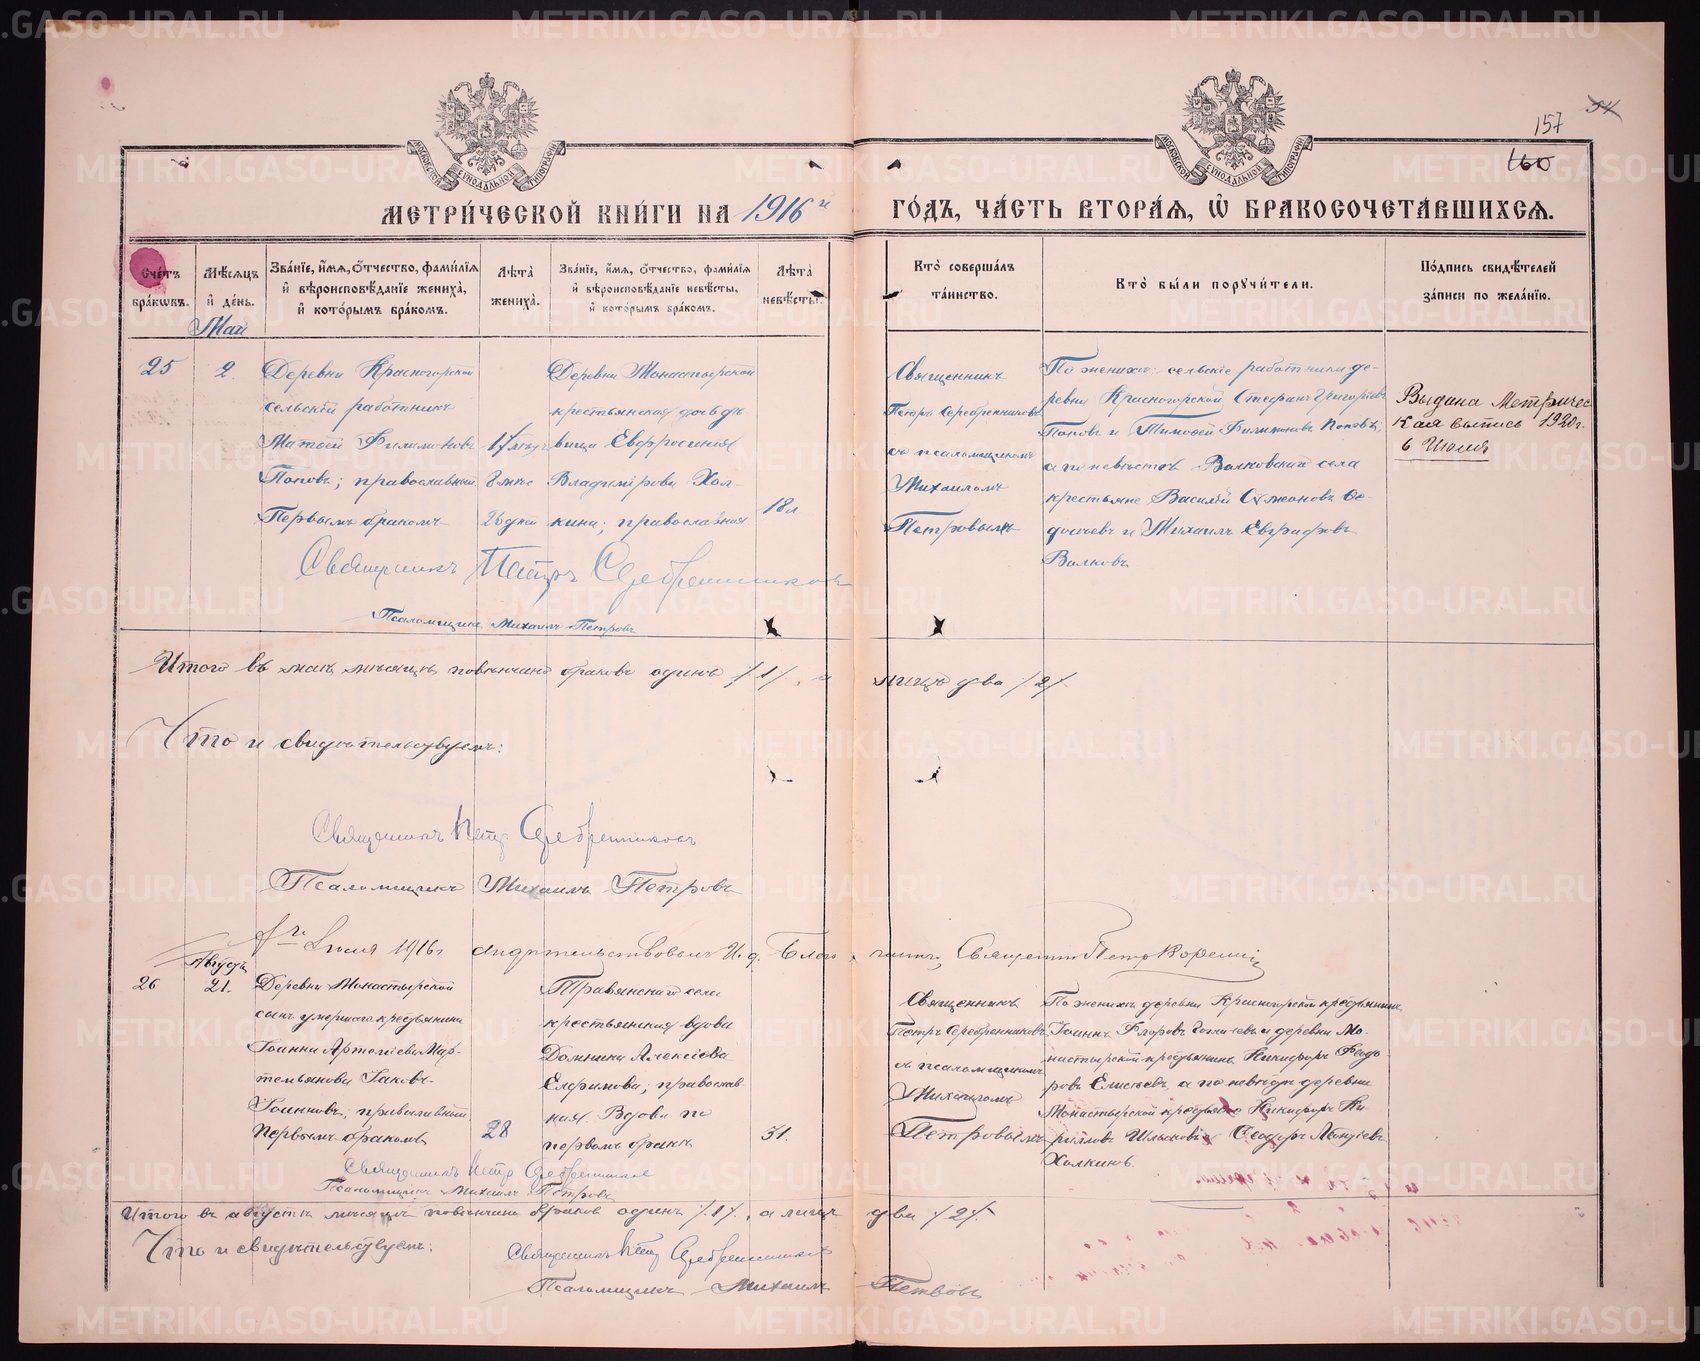 157
160
МЕТРИЧЕСКОЙ КНИГИ НА 1916 й ГОДЪ, ЧАСТЬ ВТОРАЯ, Ѡ БРАКОСОЧЕТАВШИХСЯ.
Счетъ браковъ.
Мѣсяцъ и день.
Званіе, имя, отчество, фамилія и вѣроисповѣданіе жениха, и которымъ бракомъ.
Лѣта жениха.
Званіе, имя, отчество, фамилія и вѣроисповѣданіе невѣсты, и которымъ бракомъ.
Лѣта невѣсты.
Кто совершалъ таинство.
Кто были поручители.
Подпись свидѣтелей записи по желанію.
Май
25
2.
Деревни Красногорской
сельскій работникъ
Матѳей Филимоновъ
Поповъ; православный
Первымъ бракомъ
17 лѣтъ
8 мѣс
26 дней
Деревни Монастырской
крестьянская дочь дѣ
вица Евфросинія
Владимірова Хол-
кина; православная
18 л
Священникъ
Петръ Серебренниковъ
съ псаломщикомъ
Михаиломъ
Петровымъ
По женихѣ: сельскіе работники де-
ревни Красногорской Стефанъ Григорьевъ
Поповъ и Тимоѳей Филимоновъ Поповъ,
а по невѣстѣ Волковскаго села
крестьяне Василій Симеоновъ Ѳе-
дотчевъ и Михаилъ Евграфовъ
Волковъ.
Выдана Метричес
кая выпись 1920 г.
6 Июля
Священникъ Петръ Серебренниковъ
Псаломщикъ Михаилъ Петровъ
Итого въ маѣ мѣсяцѣ повѣнчано браковъ одинъ /1/, а лицъ два /2/.
Что и свидѣтельствуемъ:
Священникъ Петръ Серебренниковъ
Псаломщикъ Михаилъ Петровъ
1916 г свидѣтельствовалъ И. д. Благочин. Священникъ Петръ
Августъ
26
21.
Деревни Монастырской
сынъ умершаго крестьянина
Іоанна Артеміева Мар-
темьянова Іаковъ
Іоанновъ; православный
Первымъ бракомъ
28
Травянскаго села
крестьянская вдова
Домнина Алексіева
Елфимова; православ-
ная. Вдова по
первомъ бракѣ
31.
Священникъ
Петръ Серебренниковъ
съ псаломщикомъ
Михаиломъ
Петровымъ
По женихѣ деревни Красногорской крестьянинъ
Іоаннъ Флоровъ и деревни Мо-
настырской крестьянинъ Никифоръ Ѳедо-
ровъ Елисѣевъ, а по невѣстѣ деревни
Монастырской крестьяне Никифоръ Ки
рилловъ и Ѳеодоръ
Холкинъ.
Священникъ Петръ Серебренниковъ
Псаломщикъ Михаилъ Петровъ
Итого въ августѣ мѣсяцѣ повѣнчано браковъ одинъ /1/, а лицъ два /2/.
Что и свидѣтельствуемъ:
Священникъ Петръ Серебренниковъ
Псаломщикъ Михаилъ Петровъ
METRIKI.GASO-URAL.RU